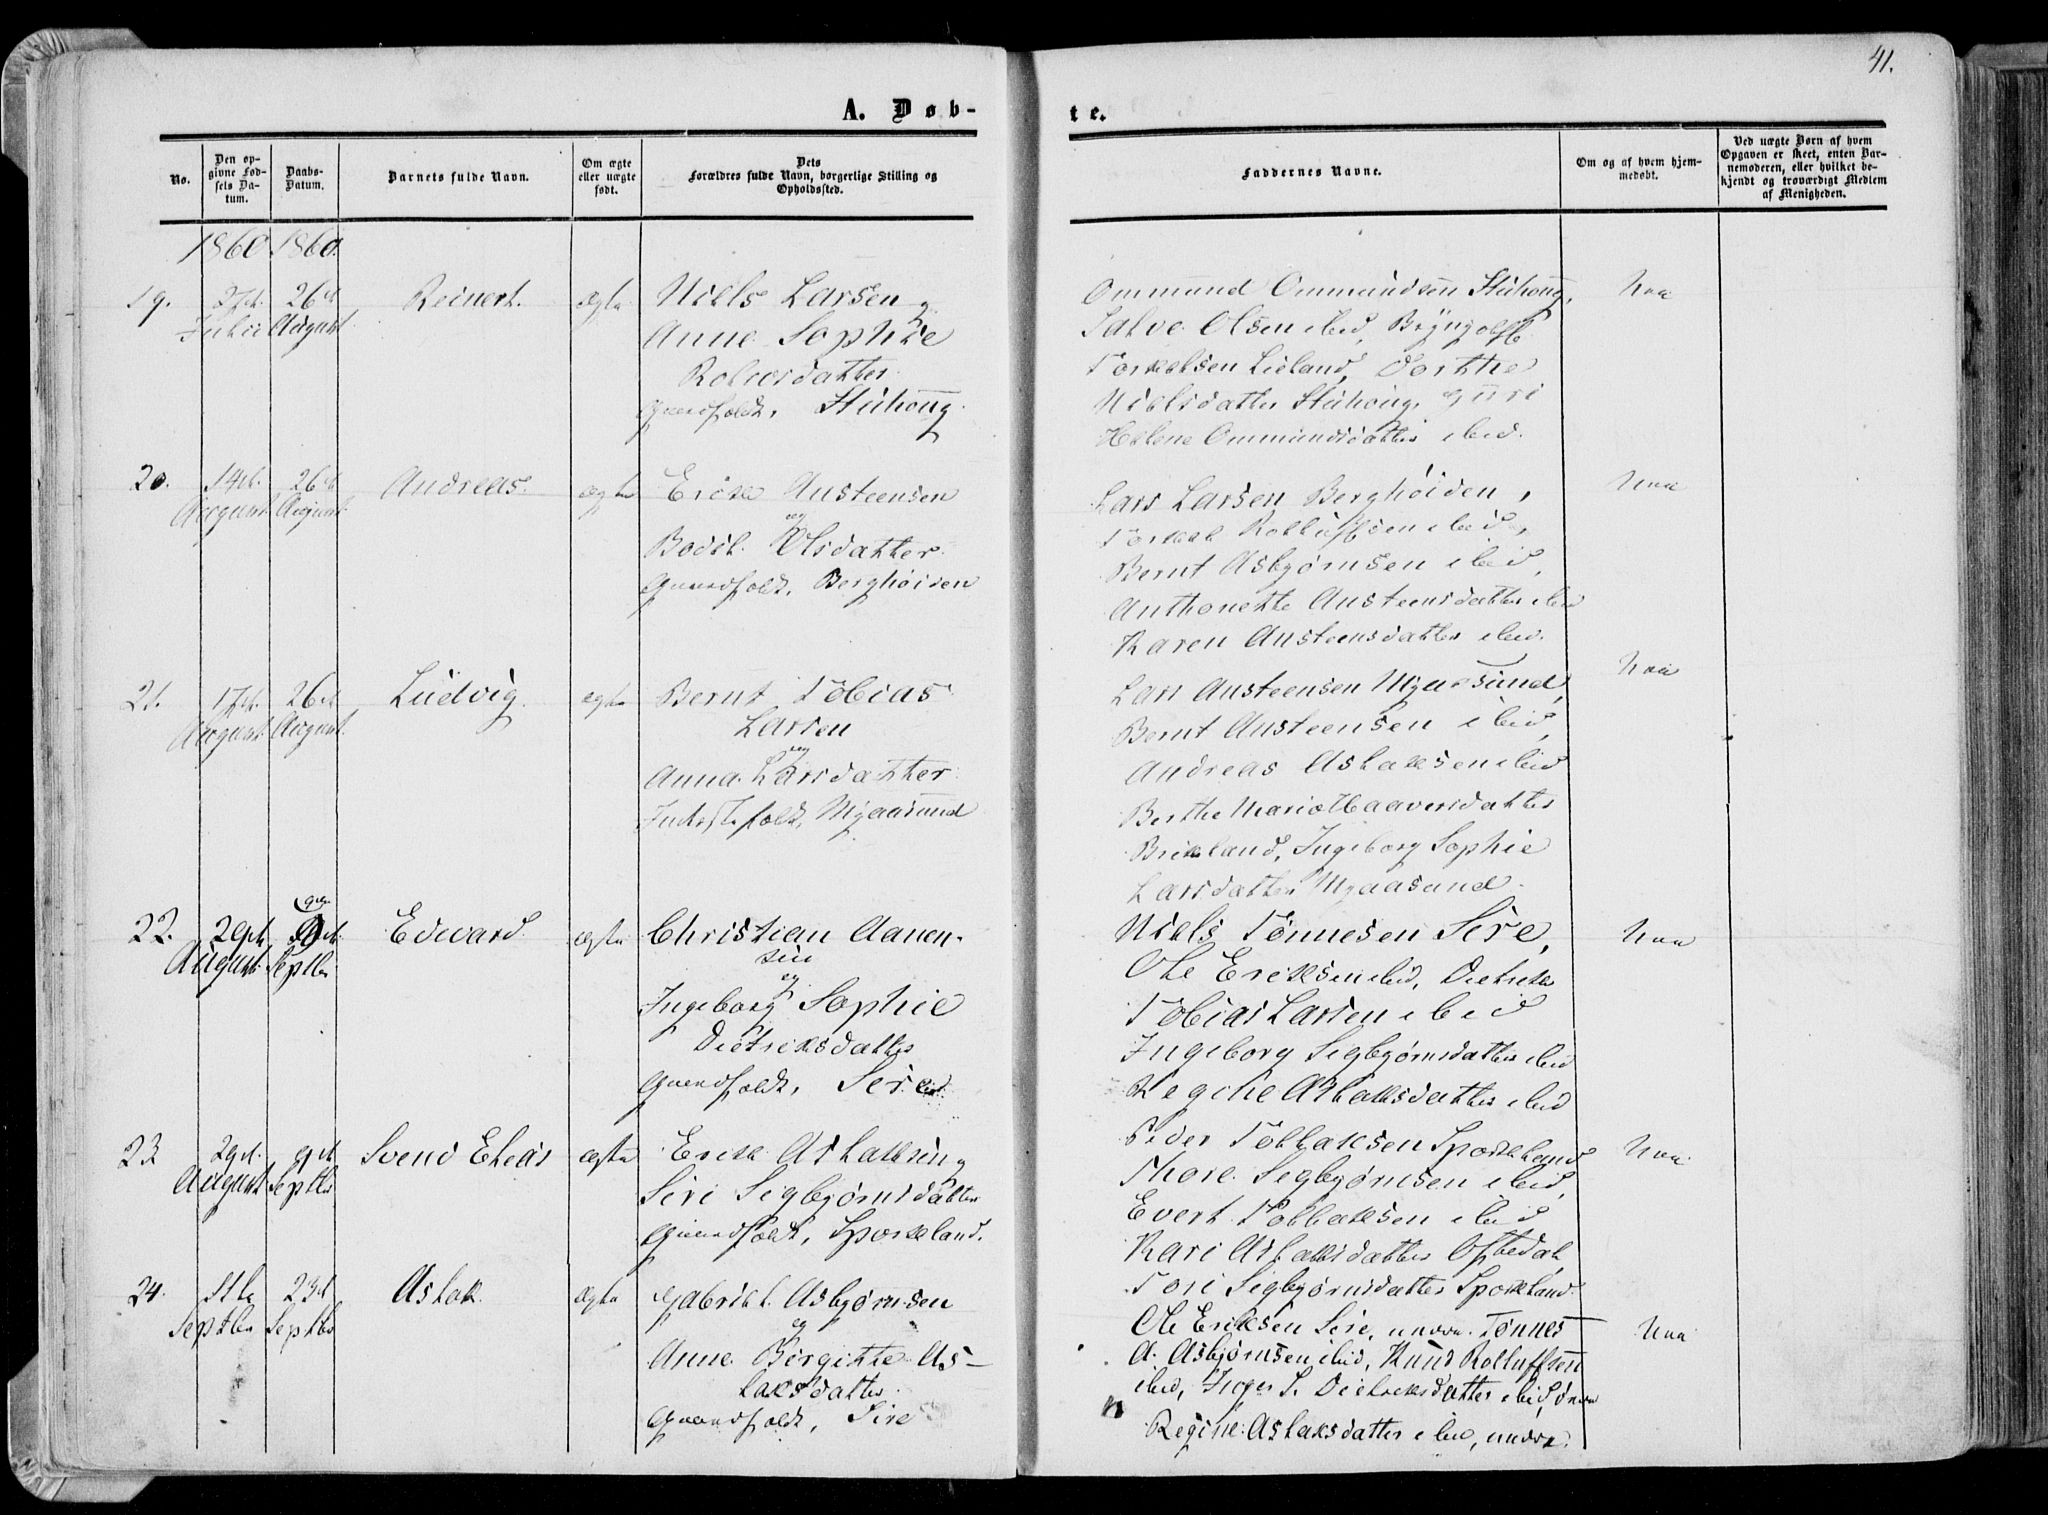 41.
A. Døb-
te.
No.
Den op-
givne Fød-
sels Da-
tum.
Daabs-
Datum.
Barnets fulde Navn.
Om ægte
eller uægte
født.
Dets
Forældres fulde Navn, borgerlige Stilling og
Opholdssted.
Faddernes Navne.
Om og af hvem hjem-
medøbt.
Ved uægte Børn af hvem
Opgaven er skeet, enten Bar-
nemoderen, eller hvilket be-
kjendt og troværdigt Medlem
af Menigheden.
1860 1860.
19.
Julii
26d
August
Reinert.
ægte
Niels Larsen
Anne Sophie
Stuhoug.
Ommund Ommundsen Stuhoug,
Salve Olsen ibid, Bryngolf
Torkelsen Lieland, Dorthe
Nielsdatter Stuhoug, Guri
Helene Ommundsdatter ibid.
20.
14d.
August
26d
August
Andreas.
ægte
Erick Austeensen
og
Bodil Olsdatter
Berghøiden
Lars Larsen Berghøiden,
Torkel Rolluffsen ibid,
Bernt Asbjørnsen ibid,
Anthonette Austeensdatter ibid
Karen Austeensdatter ibid.
21.
17d.
August
26d
August.
Ludvig
ægte
Bernt Tobias
Larsen
og
Anna Larsdatter
Mygaasund
Lars Austeensen Mygaasund,
Bernt Austeensen ibid,
Andreas Aslaksen ibid
Berthe Marie Haaversdatter
Birkeland, Ingeborg Sophie
Larsdatter Mygaasund.
22.
29d.
August
9d
Septbr
Edward
ægte
Christian Aanen-
sen
og
Ingeborg Sophie
Dietriksdatter
Sire
Niels Tønnesen Sire,
Ole Eriksen ibid, Dietrik
Tobias Larsen ibid
Ingeborg Sigbjørnsdatter ibid
Regine Aslaksdatter ibid
23
29d.
August
9d
Septbr
Svend Elias
ægte
Erik Aslaksen
Siri Sigbjørnsdatter
Sporkland.
Peder Tollaksen Sporkland
Thore Sigbjørnsen ibid,
Evert Tollaksen ibid
Kari Aslaksdatter Oftedal
Tori Sigbjørnsdatter Sporkland.
24.
5te
Septbr
23d
Septbr
Aslak.
ægte
Gabriel Asbjørnsen
og
Anne Birgitte As-
laksdatter
Sire
Ole Eriksen Sire, Tønnes
A. Asbjørnsen ibid, Knud Rolluffsen
ibid, Inger S. Dietriksdatter ibid,
Regine Aslaksdatter ibid,